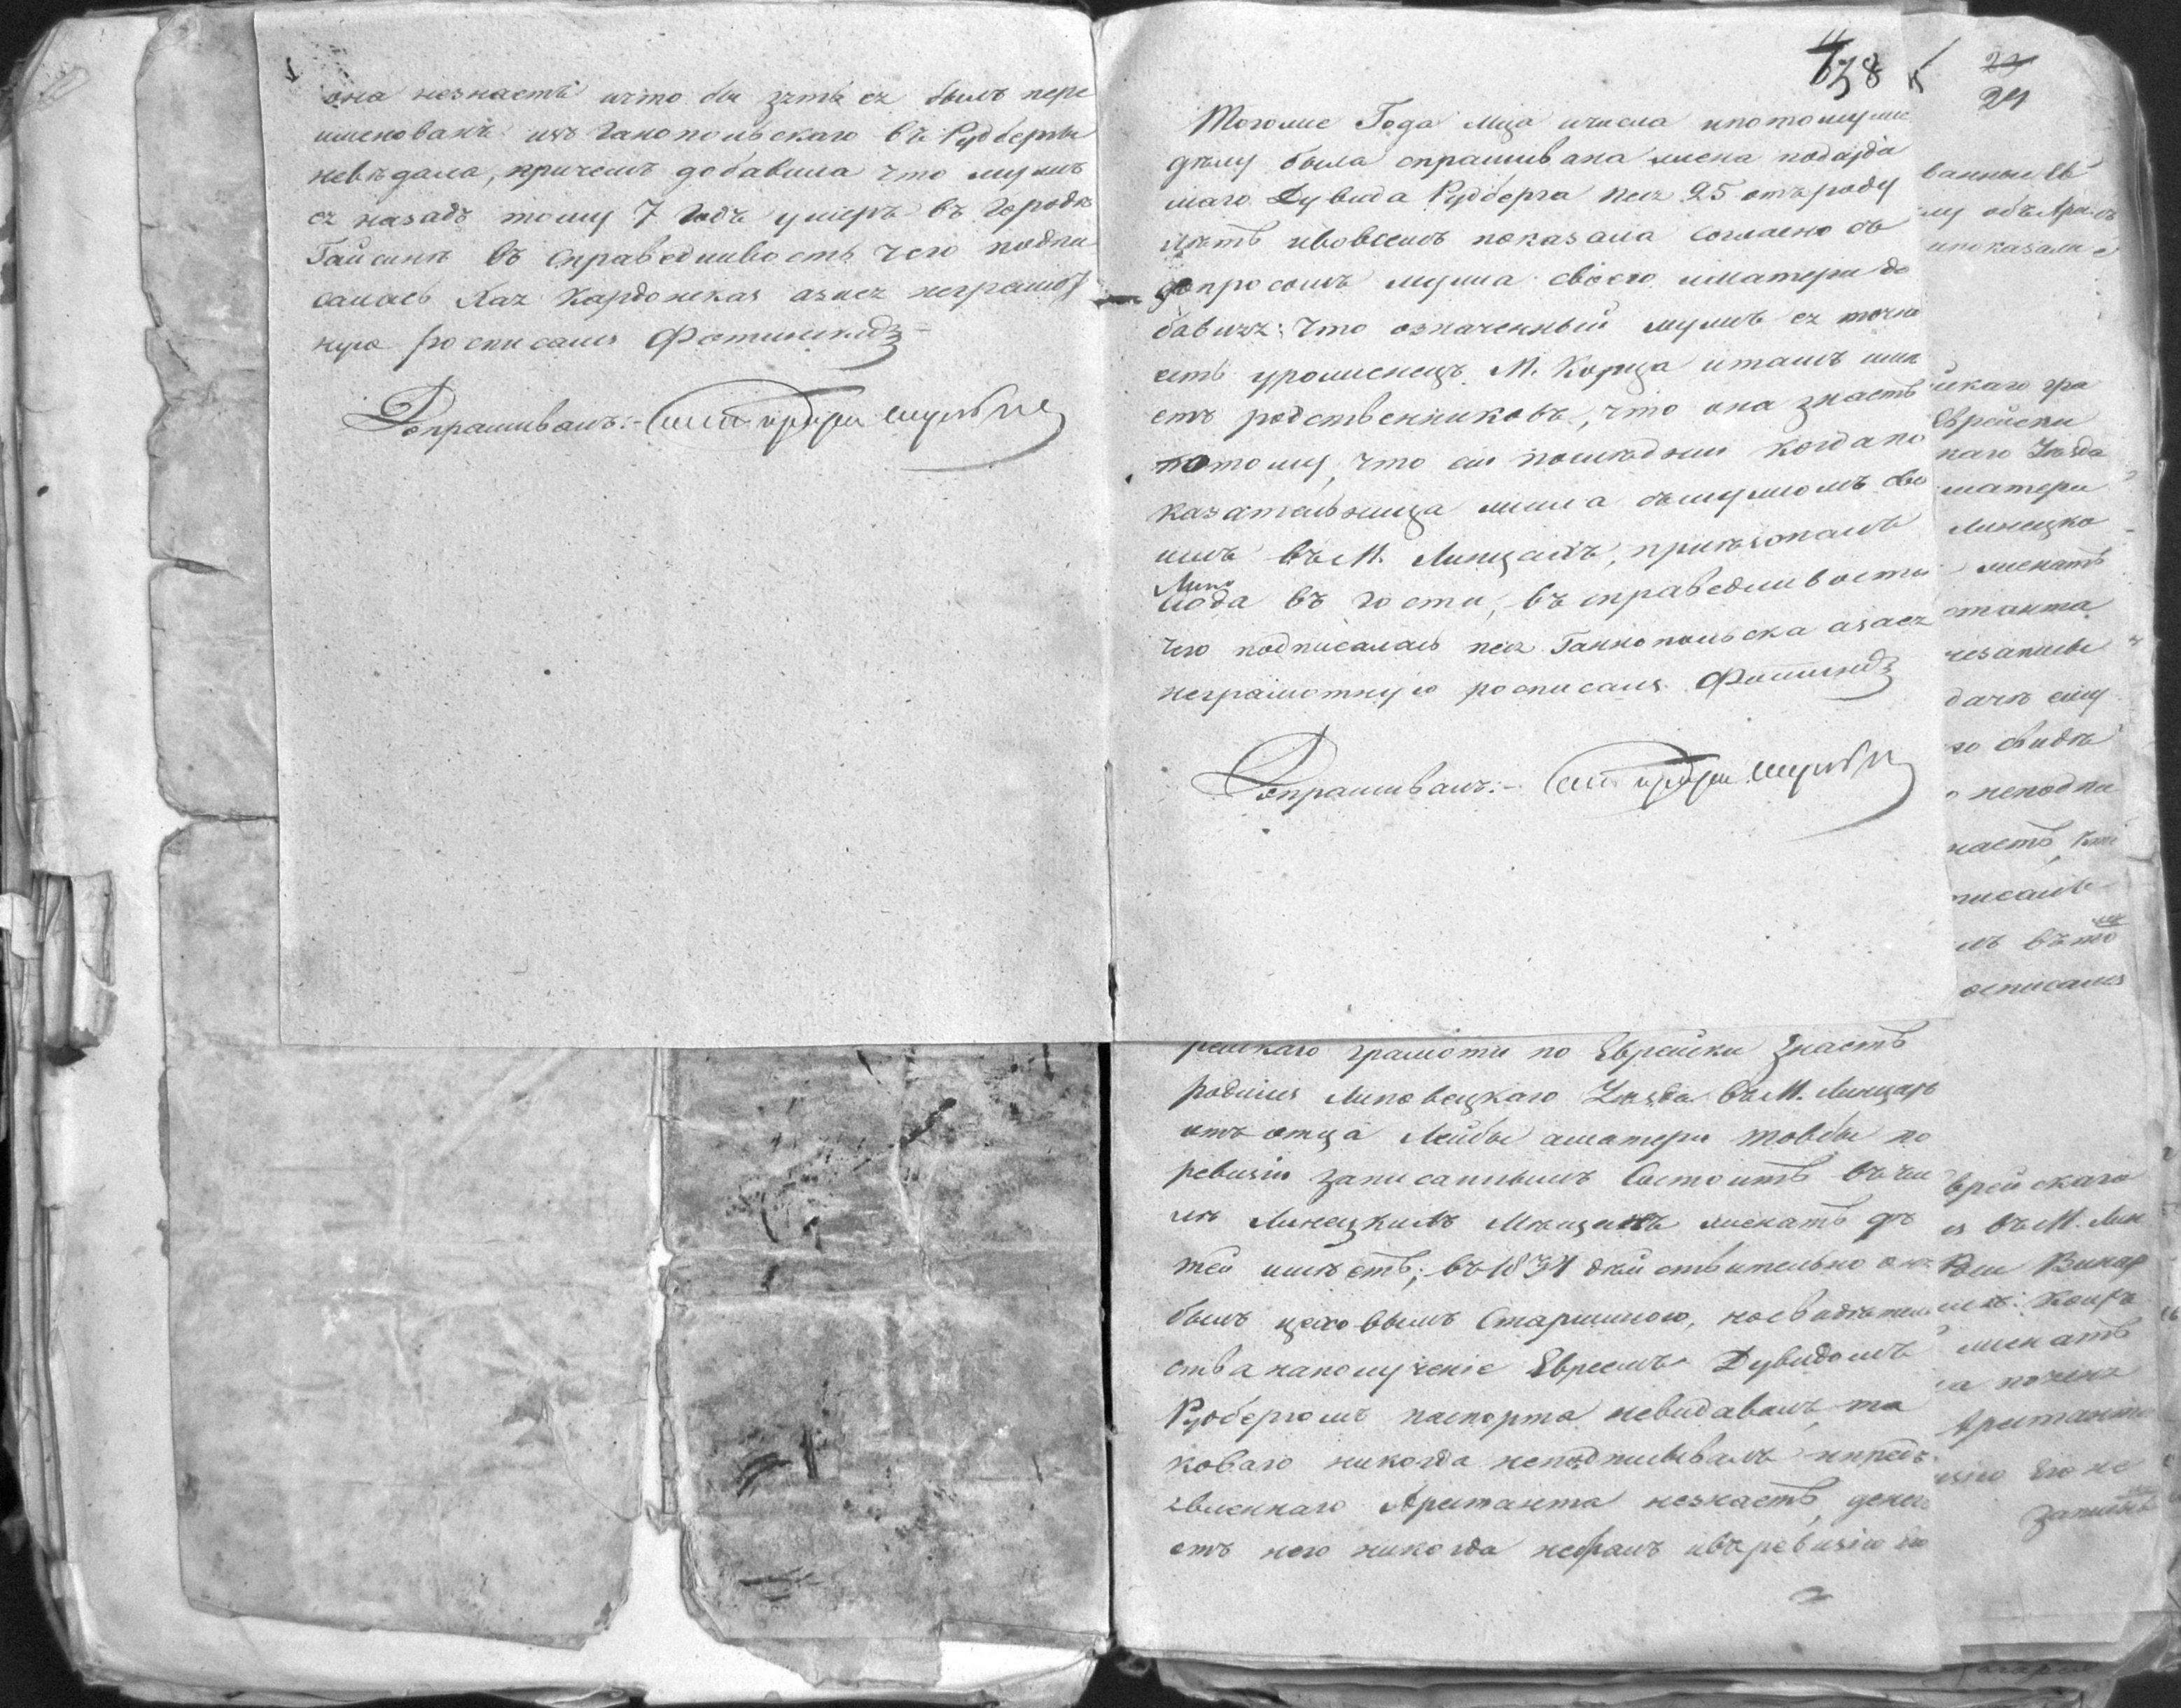 она незнаетъ ичто бы зять ея былъ пере
именованъ изъ Ганопольскаго въ Рудберги
невѣдала, причемъ добавила что мужъ
ея назадъ тому 7 Годъ умеръ въ Городѣ
Гайсинѣ въ справедливость чего подпи
салась Хая Кардонская азаея неграмот
ную росписался
Допрашивалъ:-
38
23
24
Тогоже Года мца ичисла ипотомуже
дѣлу была спрашивана жена подсуди
маго Дувида Рудберга 25 отъ роду
лѣтъ ивовсемъ показала согласно съ
допросомъ мужа своего иматери до
бавляя: что означенный мужъ ея точно
есть уроженецъ М. Корца итамъ имѣ
етъ родственниковъ, что она знаетъ
потому, что когда по
казательница жила съмужомъ сво
имъ въ М. Линцахъ, пріезжалъ
въ гости, въ справедливость
чего подписалась Ганнопольска азаея
неграмотную росписался
Допрашивалъ:-
грамоти по Еврейски знаетъ
родился Липовецкаго Уезда въ М. Линцахъ
отъ отца Лейбы аматери Товбы по
ревизіи записаннымъ Состоитъ въчи
слѣ Линецкихъ Мѣщанъ женатъ дѣ
тей имѣетъ; въ 1834 действительно онъ
былъ цеховымъ Старшиною, носвидѣтель
ства наполученіе Евреемъ Дувидомъ
Рудбергомъ паспорта невидавалъ, та
коваго никогда неподписывалъ ипредъ
явленнаго Арестанта незнаетъ, денегъ
отъ него никогда небралъ ивъревизію его
ванные Ев
му объ Аре
ипоказали
скаго гра
Еврейски
каго Уезда
матери
Линецко
женатъ
станта
дачѣ ему
го свидѣ
неподпи
наетъ
писалъ
осписался
врейскаго
въ М. Лин
женатъ
Арестанта